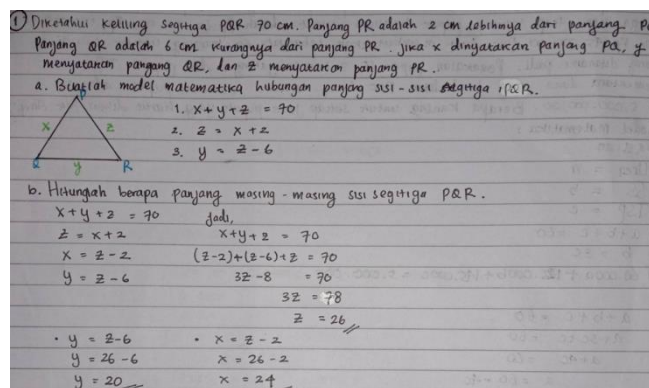 ① Diketahui keliling segitiga PQR 70 cm. Panjang PR adalah 2 cm lebihnya dari panjang
Panjang QR adalah 6 cm kurangnya dari panjang PR. Jika x dinyatakan panjang PQ, y
menyatakan pangang QR, dan z menyatakan panjang PR.
a. Buatlah model matematika hubungan panjang sisi-sisi segitiga PQR.
P
x z
Q y R
1. x+y+z = 70
2. z = x+2
3. y = z-6
b. Hitunglah berapa panjang masing-masing sisi segitiga PQR.
x+y+z = 70 Jadi,
z = x+2 x+y+z = 70
x = z-2 (z-2)+(z-6)+z = 70
y = z-6 3z-8 = 70
3z = 78
z = 26
• y = z-6 • x = z-2
y = 26-6 x = 26-2
y = 20 x = 24